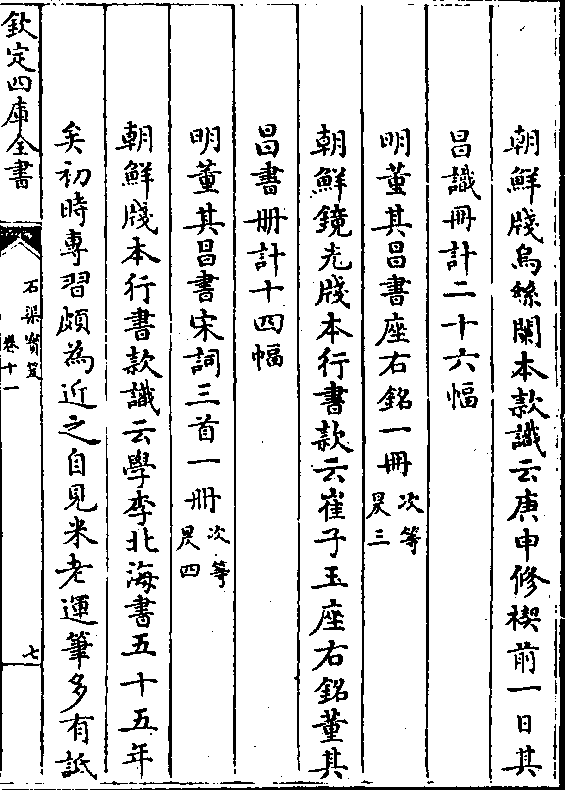 朝鮮牋烏絲闌本款識云庚申修禊前一日其
昌識冊計二十六幅
明董其昌書座右銘一冊次等
昃三
朝鮮鏡光牋本行書款云崔子玉座右銘董其
昌書冊計十四幅
明董其昌書宋詞三首一冊次等
昃四
朝鮮牋本行書款識云學李北海書五十五年
矣初時專習頗為近之自見米老運筆多有詆
欽定四庫全書
石渠寶笈
卷十一
七